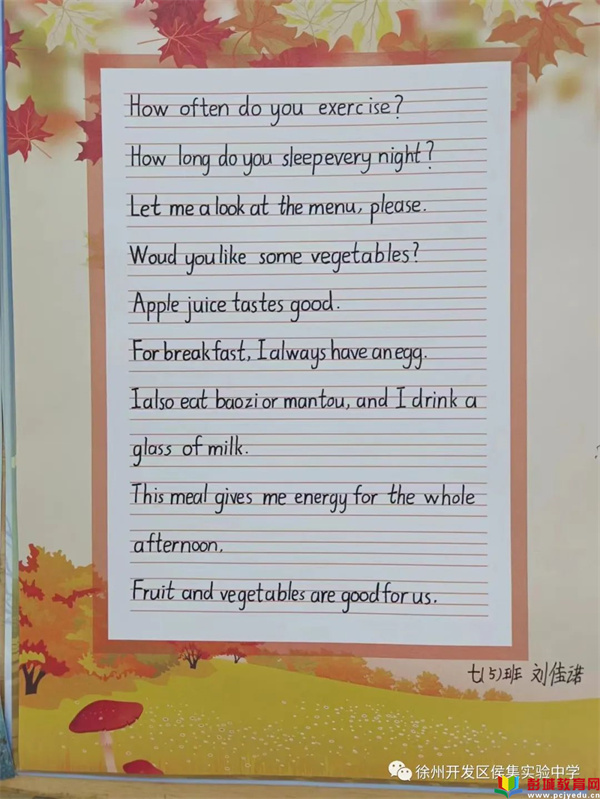 How often do you exercise?
How long do you sleep every night?
Let me a look at the menu, please.
Woud you like some vegetables?
Apple juice tastes good.
For breakfast, I always have an egg.
I also eat baozi or mantou, and I drink a
glass of milk.
This meal gives me energy for the whole
afternoon.
Fruit and vegetables are good for us.
七(5)班 刘佳诺
徐州开发区侯集实验中学
彭城教育网
www.pcjyedu.cn